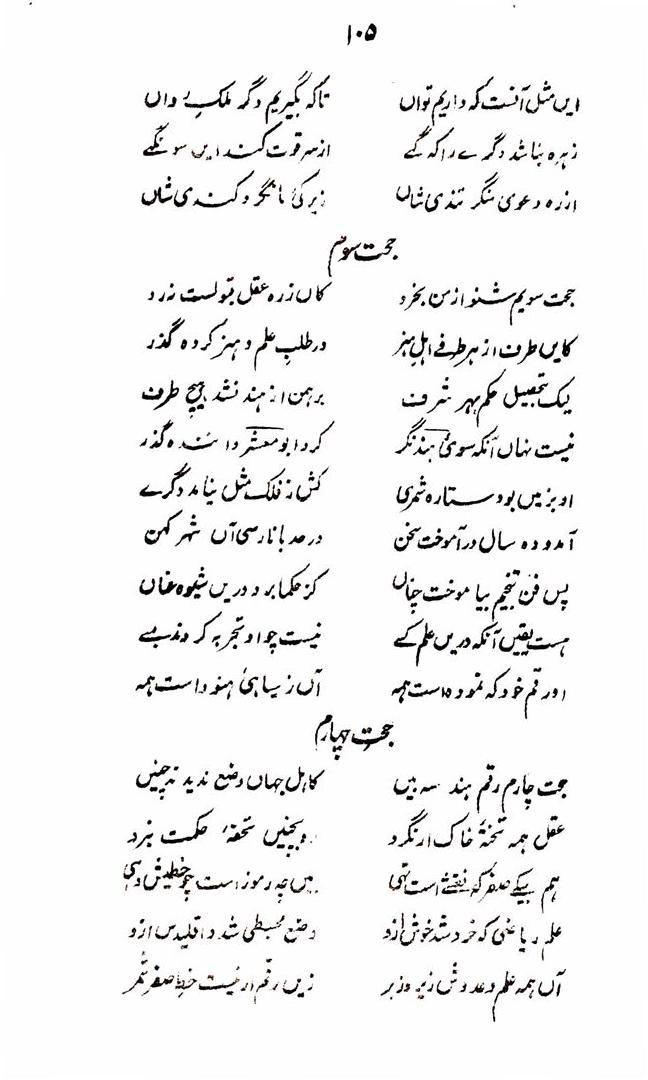 ۱۰۵
ایں مثل آنست که داریم تواں تا که بگیریم دگر ملک و واں
زهره نباشد دگرے را که گہے از سر قوت کند ایں سو نگہے
از ره دعوی منگر تندی شاں زیرکی ما نگر و کندی شاں
حجت سوم
حجت سویم شنو از من بخرد کاں ز ره عقل قبولست نه رد
کایں طرف از هر طرفے اهل هنر در طلب علم و هنر کرده گذر
لیک بتحصیل حکم بهر شرف برهمن از هند نشد هیچ طرف
نیست نهاں آنکه سوئ هند نگر کرد ابومعشر داننده گذر
او بزمیں بود ستاره شمری کش ز فلک مثل نیامد دگرے
آمد و ده سال در آموخت سخن در حد بانارسی آں شهر کهن
پس فن تنجیم بیاموخت چناں کز حکما برد دریں شیوه عناں
هست یقیں آنکه دریں علم کسے نیست چو او تجربه کردند بسے
او رقم خود که نموده است همه آں ز سیاهئ هنود است همه
حجت چهارم
حجت چارم رقم هند سه بیں کاهل جهاں وضع ندید نه چنیں
عقل همه تختهٔ خاک ار نگرد و بچنیں تحفهٔ حکمت نبرد
هم بیکے صفر که نقشے است تهی بیں چه رموز است چو خطیش دهی
علم ریاضی که خرد شد خوش ازو وضع مجسطی شد و اقلیدس ازو
آں همه علم و عدوش زیر و زبر زیں رقم ار نیست خط صفر شمر